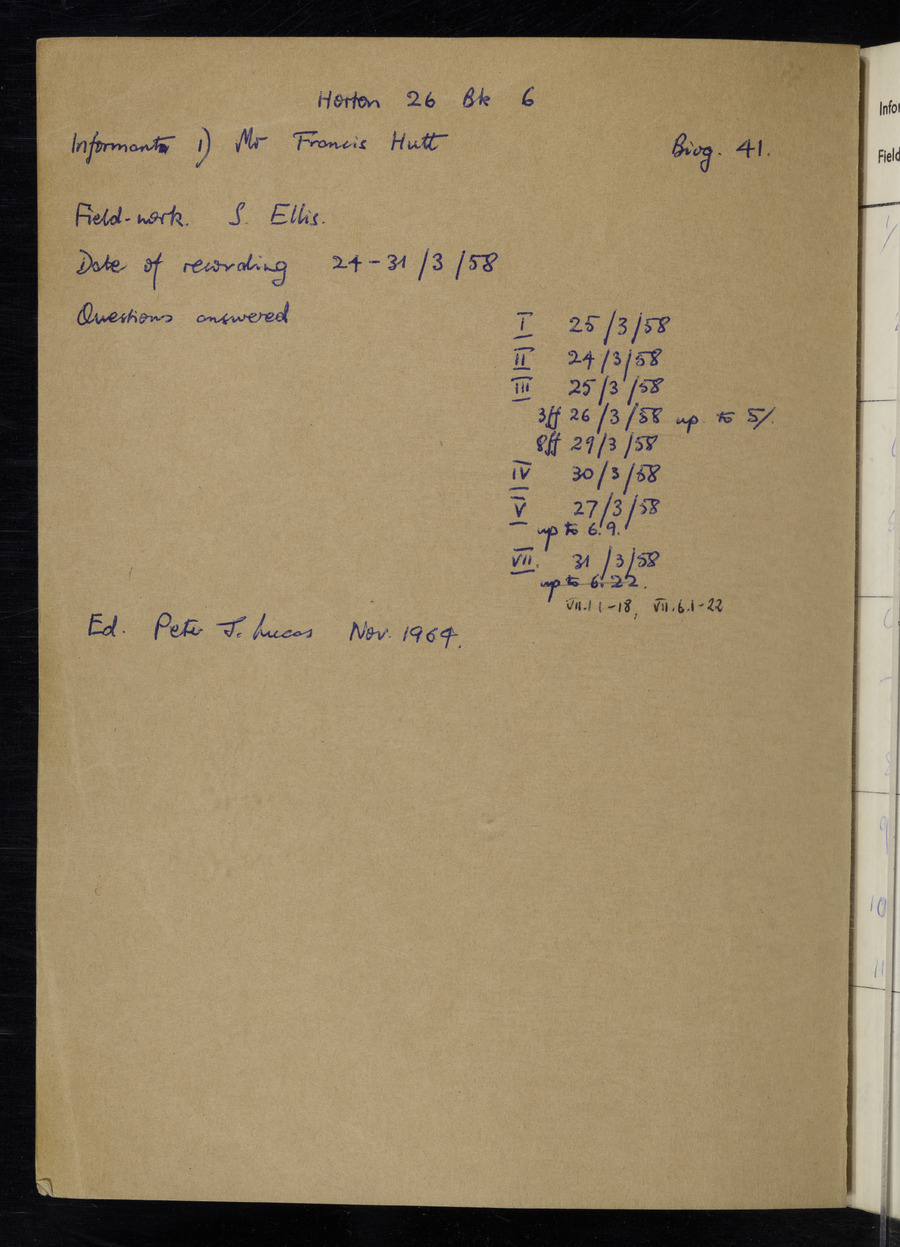 Horton 26 Bk 6
Informant 1) Mr Francis Hutt Biog. 41.
Field-work. S. Ellis.
Date of recording 24-31/3/58
Questions answered I 25/3/58
II 24/3/58
III 25/3/58
3ff 26/3/58 up to 5/.
8ff 29/3/58
IV 30/3/58
V 27/3/58
up to 6.9.
VII. 31/3/58
up to 6.22.
VII.1 1-18, VII.6.1-22
Ed. Peter J. Lucas Nov. 1964.
Infor
Field
9
10
11